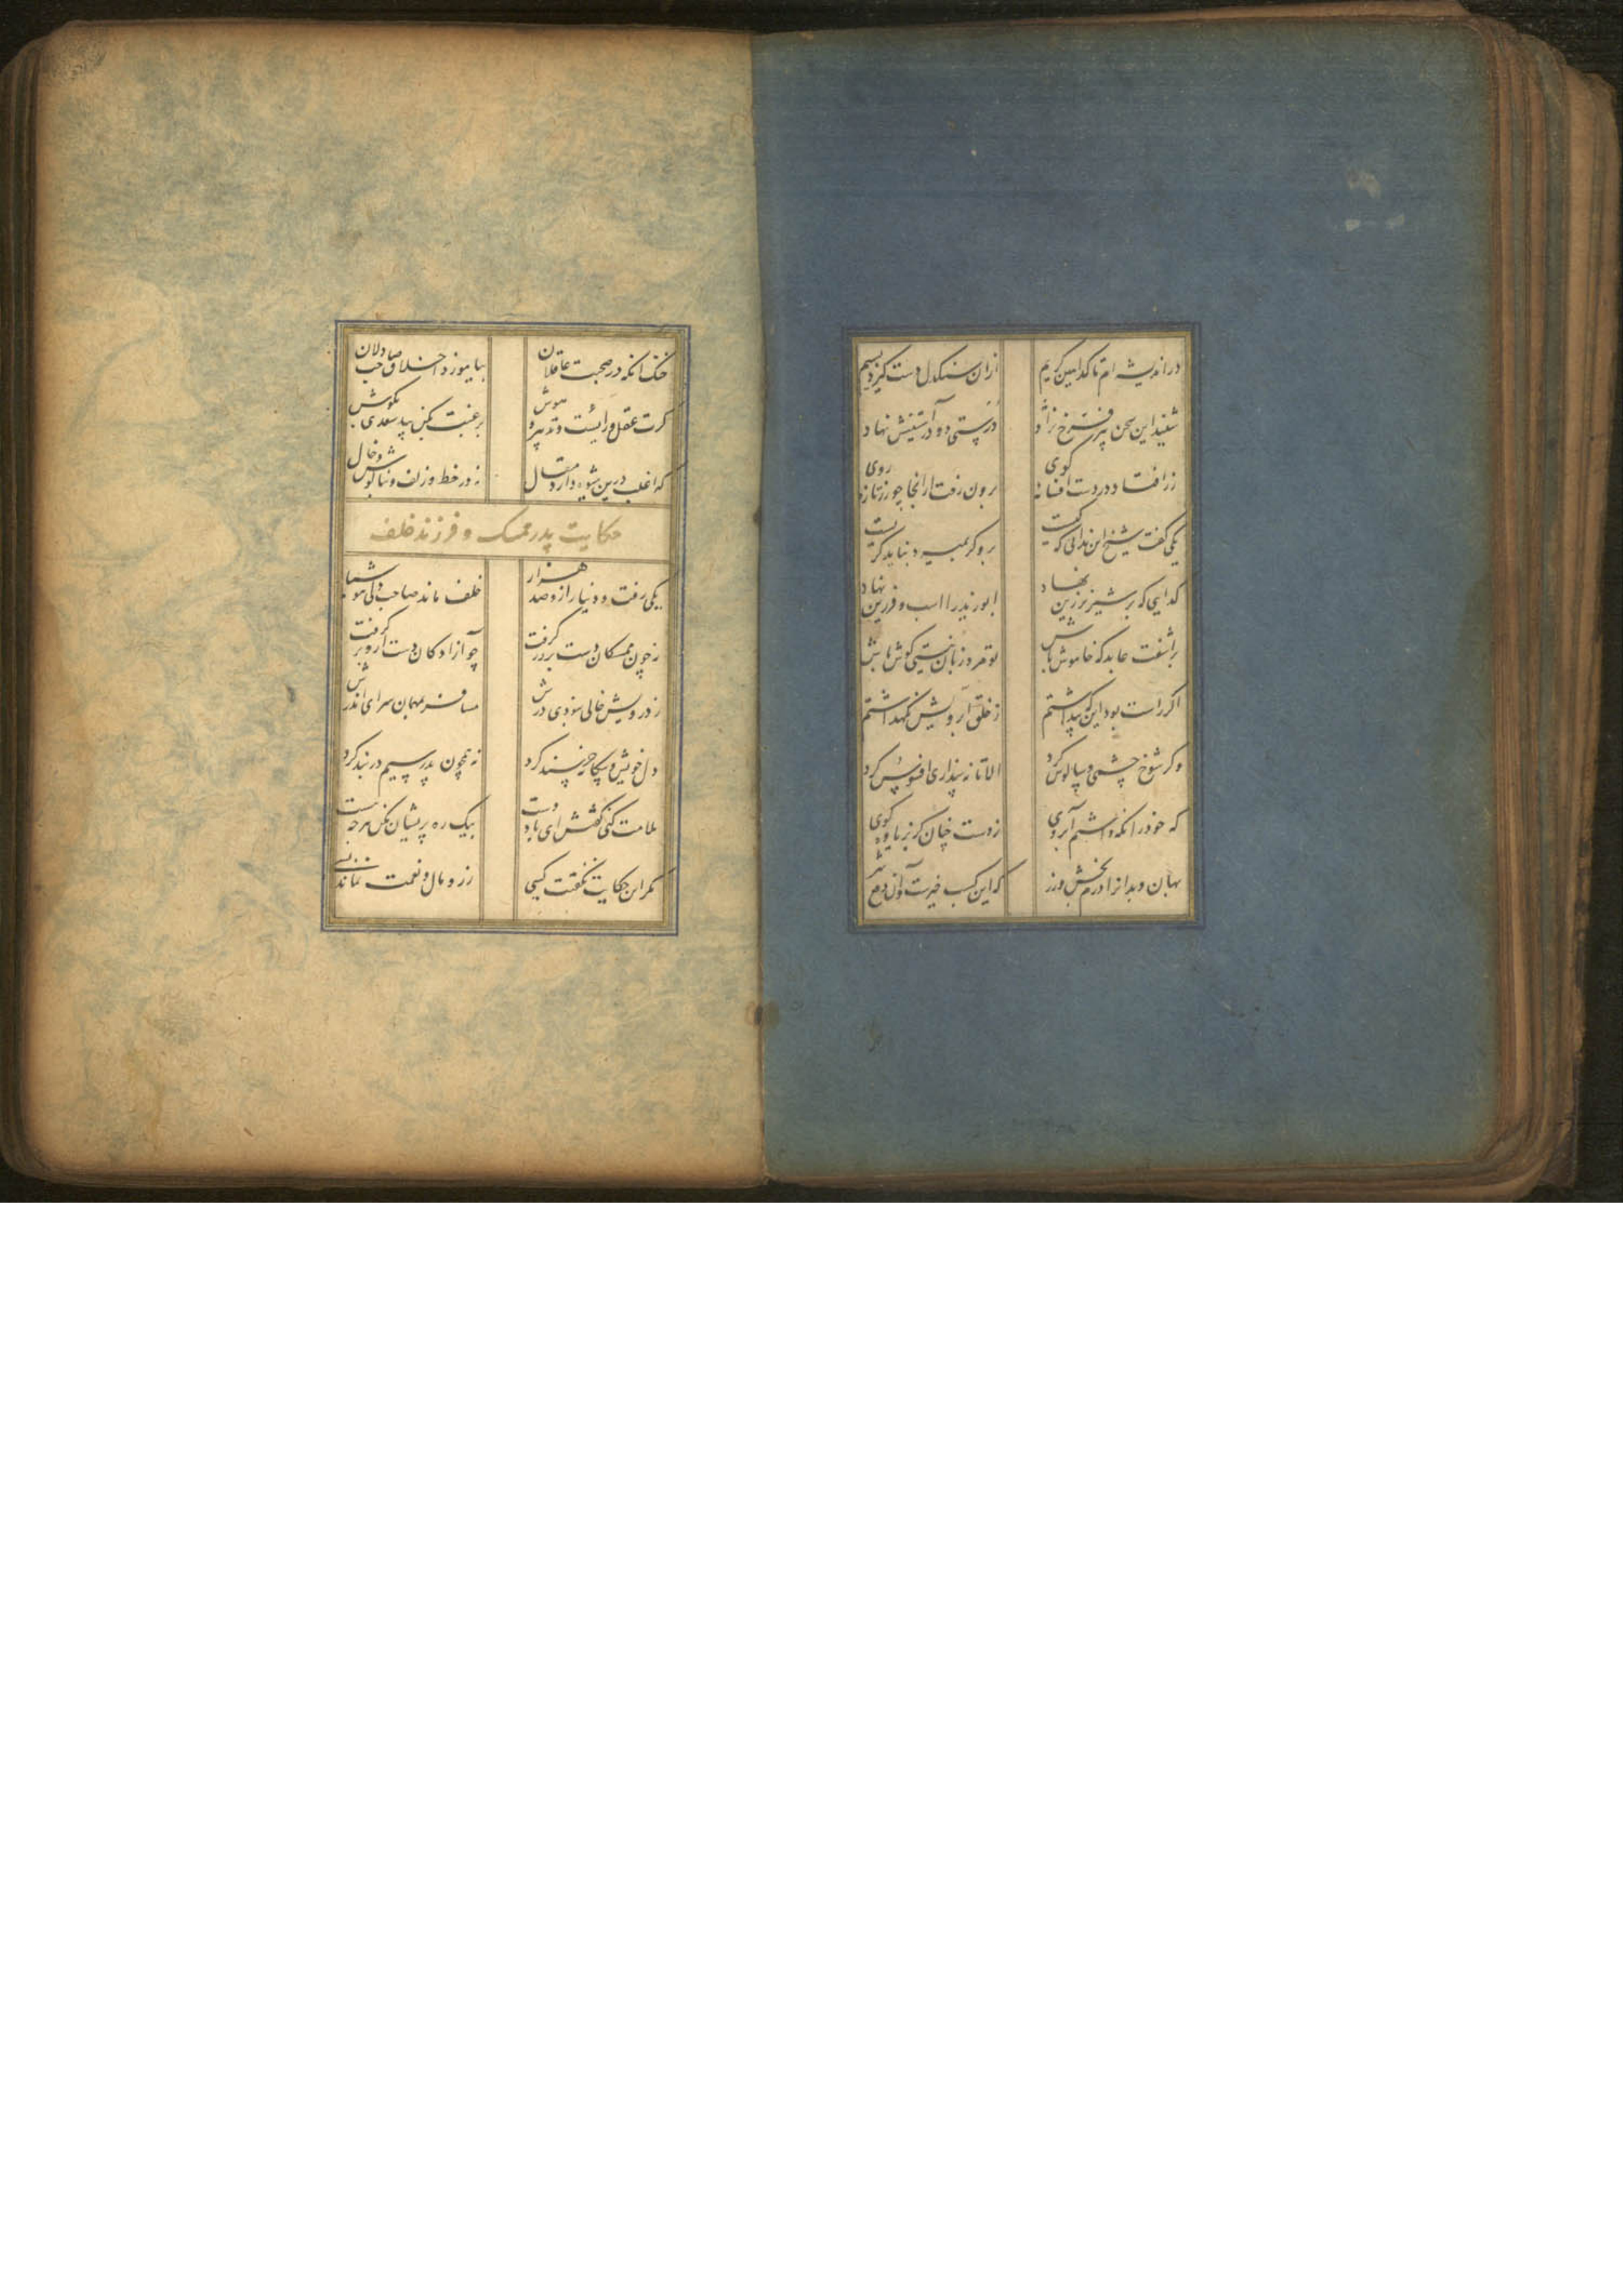 در اندیشه ام تا کدامین کریم
ازان سنکدل دست کیرد بسیم
شنید این سخن پیر فرخ نژاد
درستی دو در آستینش نهاد
زر افتاد در دست افسانه کوی
برون رفت ازانجا چو زر تازه روی
یکی کفت شیخ این ندانی که کیست
برو کر بمیرد نباید کریست
کدایی که بر شیر نر زین نهاد
ابو زید را اسب و فرزین نهاد
براشفت عابد که خاموش باش
تو مرد زبان نیستی کوش باش
اکر راست بود اینکه پنداشتم
ز خلق آب رویش نکهداشتم
وکر شوخ چشمی و سالوس کرد
الا تا نه پنداری افسوس کرد
که خود را نکه داشتم آبروی
ز دست چنان کربز یاوه کوی
بدان و بهان را درم بخش و زر
که این کسب خیرست و آن دفع شر
خنک انکه در صحبت عاقلان
بیاموزد اخلاق صاحب دلان
کرت عقل و رایست و تدبیر و هوش
برغبت کن پند سعدی بکوش
که اغلب درین شیوه دارد مقال
نه در خط و زلف و بناکوش و خال
حکایت پدر ممسک و فرزند خلف
یکی رفت و دنیا ازو صد هزار
خلف ماند صاحب دلی هوشیار
نه چون ممسکان دست بر زر کرفت
چو آزادکان دست ازو بر کرفت
ز درویش خالی نبودی درش
مسافر بمهمان سرای اندرش
دل خویش و بیکانه خرسند کرد
نه همچون پدر سیم در بند کرد
ملامت کنی کفتش ای باد دست
بیک ره پریشان مکن هرچه هست
مکر این حکایت نکفتت کسی
زر و مال و نعمت نماند بسی